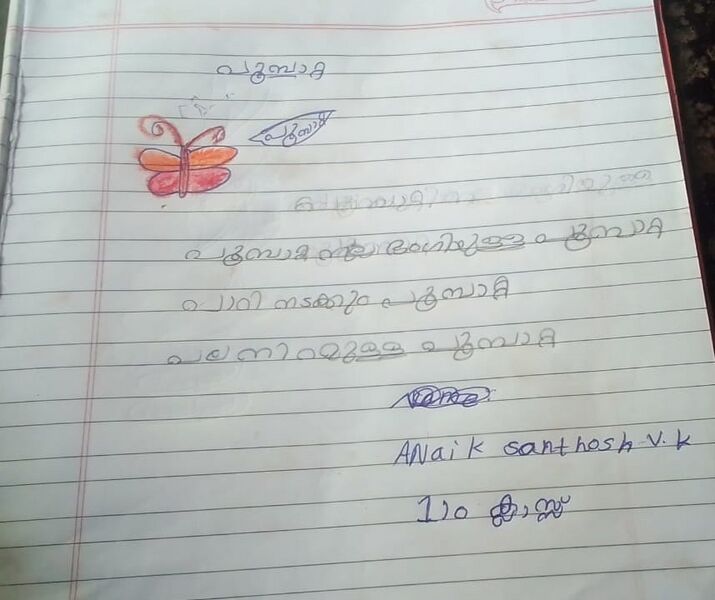 പൂമ്പാറ്റ
പൂമ്പാറ്റ
പൂമ്പാറ്റ നല്ല ഭംഗിയുള്ള പൂമ്പാറ്റ
പാറി നടക്കും പൂമ്പാറ്റ
പല നിറമുള്ള പൂമ്പാറ്റ
ANaik santhosh v.k
1ാം ക്ലാസ്സ്